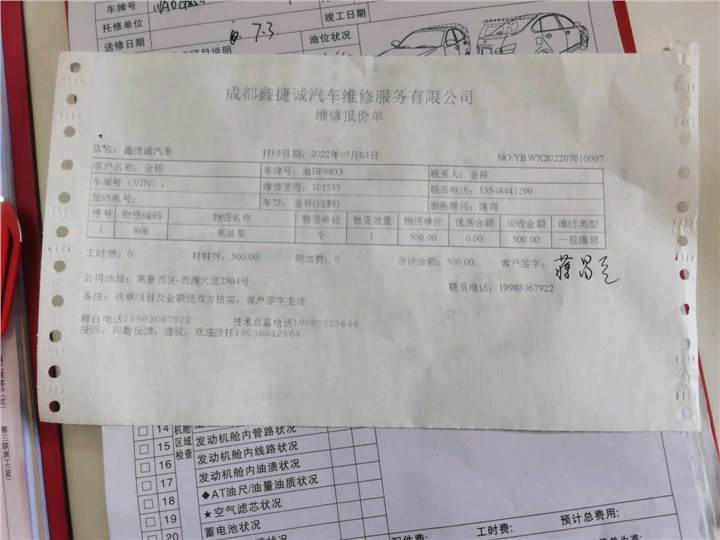 车牌号
托修单位
竣工日期
送修日期 7.3 油位状况
项目说明
成都鑫捷诚汽车维修服务有限公司
维修报价单
店名：鑫捷诚汽车 打印日期：2022年07月03日 NO:YBWX202207010007
客户名称：金杯 车牌号：渝BP8833 联系人：金杯
车架号（VIN）： 维修里程：101535 联系电话：13548441299
发动机号： 车型：金杯(海狮) 服务顾问：
序号 物资编码 物资名称 物资单位 物资数量 物资单价 优惠金额 应收金额 维修类型
1 806 机油泵 个 1 500.00 0.00 500.00 一般维修
工时费：0 材料费：500.00 附加费：0 合计金额：500.00 客户签字：
公司地址：高新西区-西源大道2304号 联系电话：19983067922
备注：该单项目及金额经双方核实，客户签字生效
前台电话19983067922 技术总监电话18080805644
投诉，问题反馈，建议，欢迎拨打18086842964
14 机舱区域检查
15 发动机舱内管路状况
16 发动机舱内线路状况
17 发动机舱内油渍状况
18 ◆AT油尺/油量油质状况
19 ★空气滤芯状况
20 蓄电池状况
工时费： 预计总费用：
第三联派工(蓝)